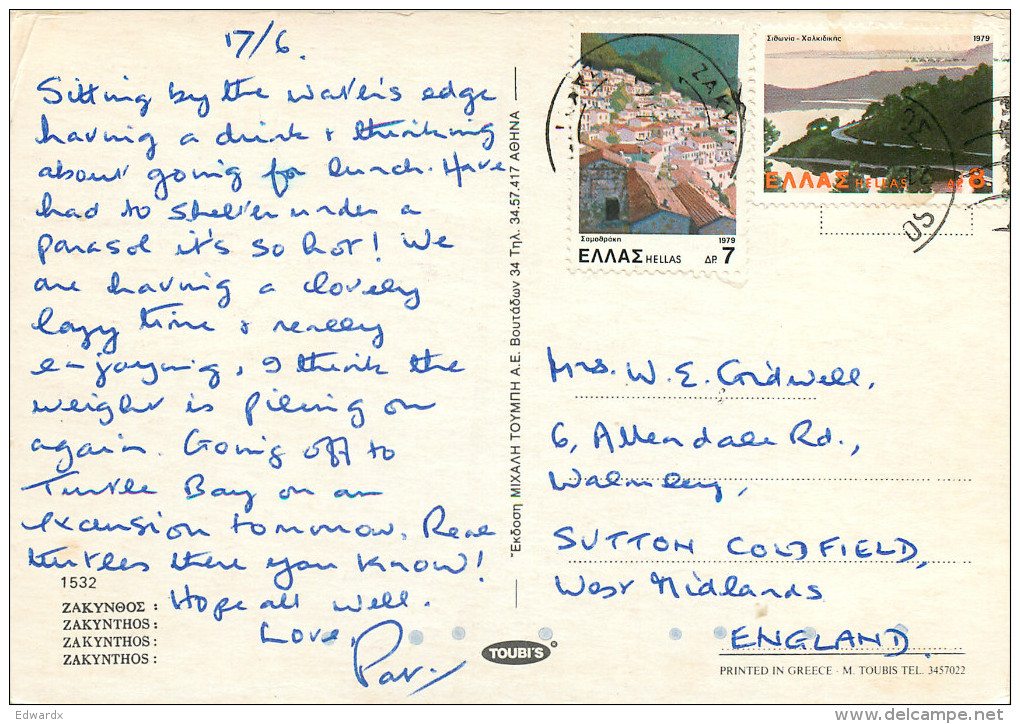 17/6.
Sitting by the water's edge
having a drink + thinking
about going for lunch. Have
had to shelter under a
parasol it's so hot! We
are having a lovely
lazy time + really
enjoying, I think the
weight is piling on
again. Going off to
Turtle Bay on an
excursion tomorrow, Real
turtles there you know!
Hope all well.
Love,
Pat.
1532
ΖΑΚΥΝΘΟΣ :
ZAKYNTHOS :
ZAKYNTHOS :
ZAKYNTHOS :
Ἔκδοση ΜΙΧΑΛΗ ΤΟΥΜΠΗ Α.Ε. Βουτάδων 34 Τηλ. 34.57.417 ΑΘΗΝΑ
TOUBI'S
Σαμοθράκη 1979
ΕΛΛΑΣ HELLAS ΔΡ. 7
Σιθωνία - Χαλκιδικῆς 1979
ΕΛΛΑΣ HELLAS ΔΡ. 8
Mrs. W. E. Gridwell,
6, Allendale Rd.,
Walmley,
SUTTON COLDFIELD,
West Midlands
ENGLAND.
PRINTED IN GREECE - M. TOUBIS TEL. 3457022
Edwardx
delcampe.net